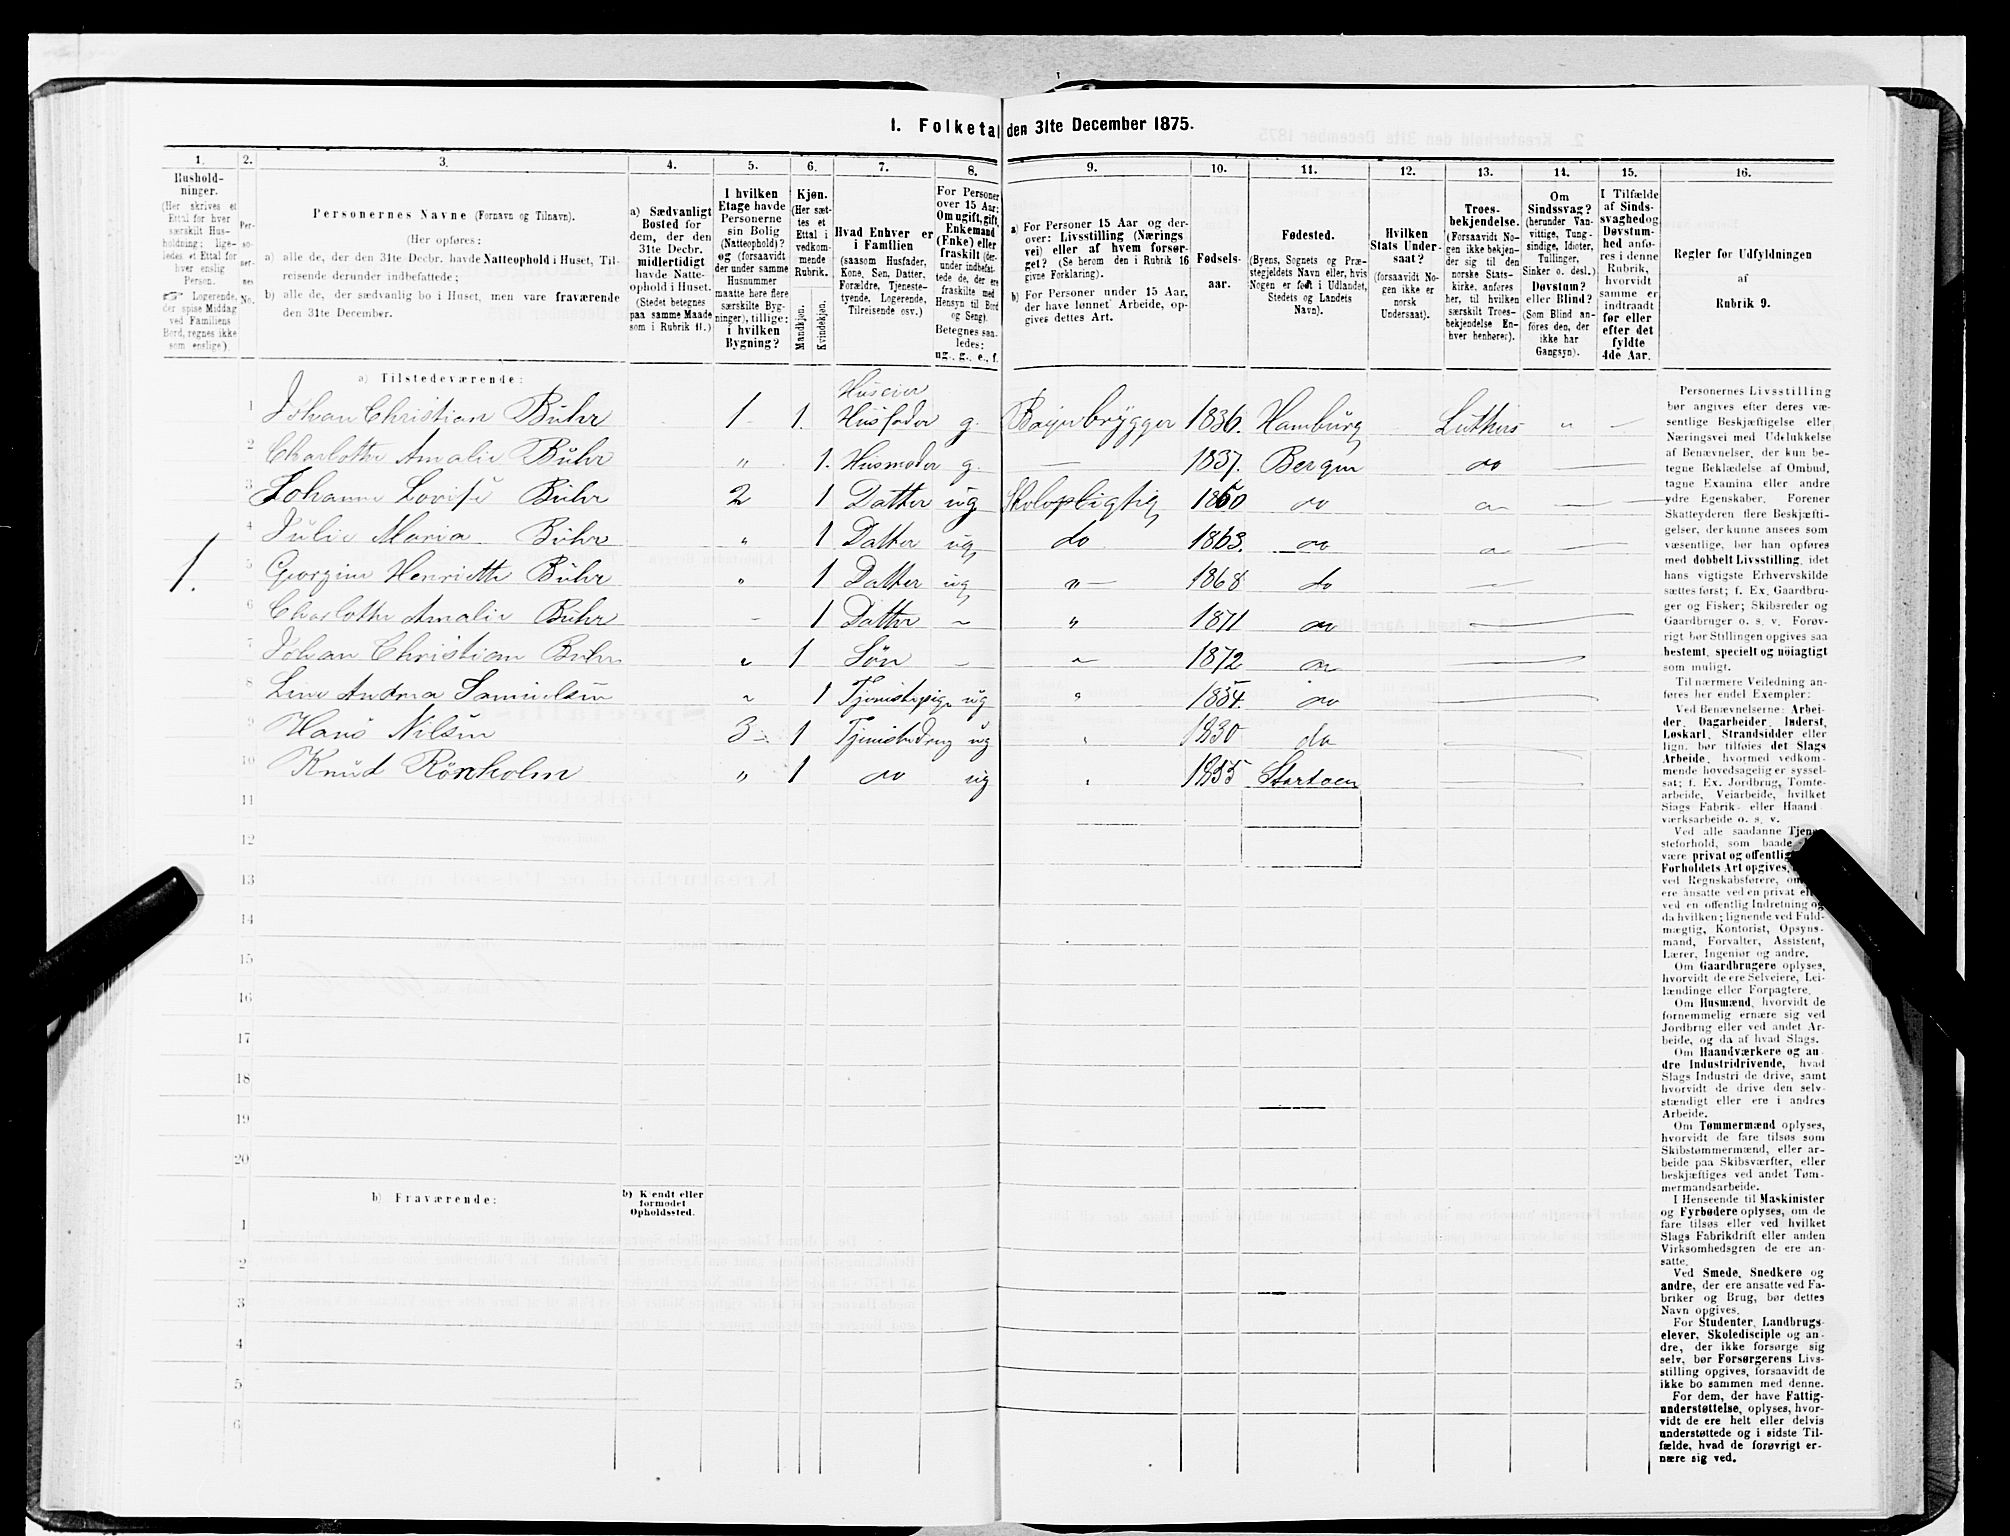 1. Folketal den 31te December 1875.
1.
Husholdninger.
(Her skrives et Ettal for hver særskilt Husholdning; ligeledes et Ettal for hver enslig Person.
☞ Logerende, der spise Middag ved Familiens Bord, regnes ikke som enslige).
2.
Personernes No.
3.
Personernes Navne (Fornavn og Tilnavn).
(Her opføres:
a) alle de, der den 31te Decbr. havde Natteophold i Huset, Tilreisende derunder indbefattede;
b) alle de, der sædvanlig bo i Huset, men vare fraværende den 31te December.
4.
a) Sædvanligt Bosted for dem, der den 31te Decbr. midlertidigt havde Natteophold i Huset.
(Stedet betegnes paa samme Maade som i Rubrik 11.)
5.
I hvilken Etage havde Personerne sin Bolig (Natteophold)? og (forsaavidt der under samme Husnummer maatte høre flere særskilte Bygninger), tillige: i hvilken Bygning?
6.
Kjøn.
(Her sættes et Ettal i vedkommende Rubrik.
Mandkjøn. Kvindekjøn.
7.
Hvad Enhver er i Familien
(saasom Husfader, Kone, Søn, Datter, Forældre, Tjenestetyende, Logerende, Tilreisende osv.)
8.
For Personer over 15 Aar: Om ugift, gift, Enkemand (Enke) eller fraskilt (derunder indbefattede de, der ere fraskilte med Hensyn til Bord og Seng).
Betegnes saaledes: ug., g., e., f.
9.
a) For Personer 15 Aar og derover: Livsstilling (Næringsvei) eller af hvem forsørget? (Se herom den i Rubrik 16 givne Forklaring).
b) For Personer under 15 Aar, der have lønnet Arbeide, opgives dettes Art.
10.
Fødselsaar.
11.
Fødested.
(Byens, Sognets og Præstegjeldets Navn eller, hvis Nogen er født i Udlandet, Stedets og Landets Navn).
12.
Hvilken Stats Undersaat?
(forsaavidt Nogen ikke er norsk Undersaat).
13.
Troesbekjendelse.
(Forsaavidt Nogen ikke bekjender sig til den norske Statskirke, anføres her, til hvilken særskilt Troesbekjendelse Enhver henhører).
14.
Om Sindssvag?
(herunder Vanvittige, Tungsindige, Idioter, Tullinger, Sinker o. desl.)
Døvstum? eller Blind?
(Som Blind anføres den, der ikke har Gangsyn).
15.
I Tilfælde af Sindssvaghed og Døvstumhed anføres i denne Rubrik, hvorvidt samme er indtraadt før eller efter det fyldte 4de Aar.
16.
Regler for Udfyldningen af Rubrik 9.
a) Tilstedeværende:
1 Johan Christian Bühr 1 1. Huseier Husfader g. Baierbrygger 1836. Hamburg Luthers " —
2 Charlotte Amalie Bühr " 1. Husmoder g. — 1837. Bergen do —
3 Johanne Lovise Bühr 2 1 Datter ug Skolepligtig 1860 do do —
4 Julie Maria Bühr " 1 Datter ug do 1863. do do —
1. 5 Georgine Henriette Bühr " 1 Datter ug " — 1868 do —
6 Charlotte Amalie Bühr – 1 Datter ~ " 1871 do —
7 Johan Christian Bühr " 1 Søn – " 1872 do —
8 Line Andrea Samuelsen " 1 Tjenestepige ug " 1854. do —
9 Hans Nilsen 3 1 Tjenestedreng ug " 1830 do —
10 Knud Rönholm " 1 do ug " 1855 —
11
12
13
14
15
16
17
18
19
20
b) Fraværende:
b) Kjendt eller formodet Opholdssted.
1
2
3
4
5
6
Personernes Livsstilling
bør angives efter deres væ-
sentlige Beskjæftigelse eller
Næringsvei med Udelukkelse
af Benævnelser, der kun be-
tegne Beklædelse af Ombud,
tagne Examina eller andre
ydre Egenskaber. Forener
Skatteyderen flere Beskjæfti-
gelser, der kunne ansees som
væsentlige, bør han opføres
med dobbelt Livsstilling, idet
hans vigtigste Erhvervskilde
sættes først; f. Ex. Gaardbru-
ger og Fisker; Skibsreder og
Gaardbruger o. s. v. Forøv-
rigt bør Stillingen opgives saa
bestemt, specielt og nöiagtigt
som muligt.
Til nærmere Veiledning an-
føres her endel Exempler:
Ved Benævnelserne: Arbei-
der, Dagarbeider, Inderst,
Løskarl, Strandsidder eller
lign. bør tilføies det Slags
Arbeide, hvormed vedkom-
mende hovedsagelig er syssel-
sat; f. Ex. Jordbrug, Tomte-
arbeide, Veiarbeide, hvilket
Slags Fabrik- eller Haand-
værksarbeide o. s. v.
Ved alle saadanne Tjene-
steforhold, som baade
være privat og offentlig,
Forholdets Art opgives,
ved Regnskabsførere, om
ere ansatte ved en privat eller
ved en offentlig Indretning og
da hvilken; lignende ved Fuld-
mægtig, Kontorist, Opsyns-
mand, Forvalter, Assistent,
Lærer, Ingeniør og andre.
Om Gaardbrugere oplyses,
hvorvidt de ere Selveiere, Lei-
lændinge eller Forpagtere.
Om Husmænd, hvorvidt de
fornemmelig ernære sig ved
Jordbrug eller ved andet Ar-
beide, og da af hvad Slags.
Om Haandværkere og an-
dre Industridrivende, hvad
Slags Industri de drive, samt
hvorvidt de drive den selv-
stændigt eller ere i andres
Arbeide.
Om Tømmermænd oplyses,
hvorvidt de fare tilsøs som
Skibstømmermænd, eller ar-
beide paa Skibsværfter, eller
beskjæftiges ved andet Tøm-
mermandsarbeide.
I Henseende til Maskinister
og Fyrbødere oplyses, om de
fare tilsøs eller ved hvilket
Slags Fabrikdrift eller anden
Virksomhedsgren de ere an-
satte.
Ved Smede, Snedkere og
andre, der ere ansatte ved Fa-
briker og Brug, bør dettes
Navn opgives.
For Studenter, Landbrugs-
elever, Skoledisciple og an-
dre, der ikke forsørge sig
selv, bør Forsørgerens Livs-
stilling opgives, forsaavidt de
ikke bo sammen med denne.
For dem, der have Fattig-
understøttelse, oplyses, hvor-
vidt de ere helt eller delvis
understøttede og i sidste Til-
fælde, hvad de forøvrigt er-
nære sig ved.